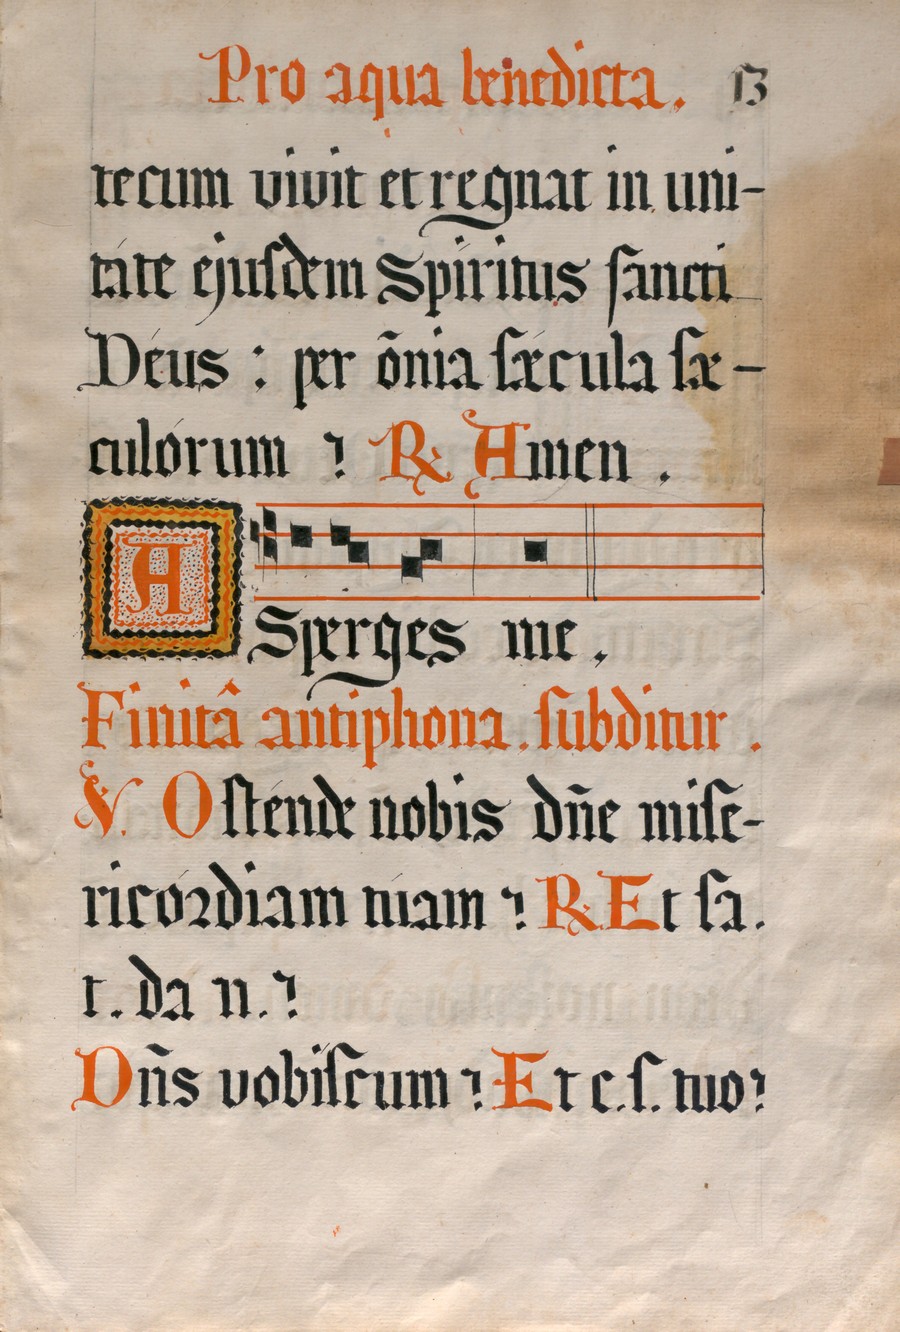 Pro aqua benedicta. 13
tecum vivit et regnat in uni-
táte ejúsdem Spíritus sancti
Déus : per õnia sǽcula sæ-
culórum ? ℟ Amen .
A
Sperges me ,
Finitâ antiphona . subditur .
℣. Osténde nobis dñe mise-
ricórdiam túam ? ℟ Et sa.
t. da n. ?
Dñs vobíscum ? Et c. s. tuo ?